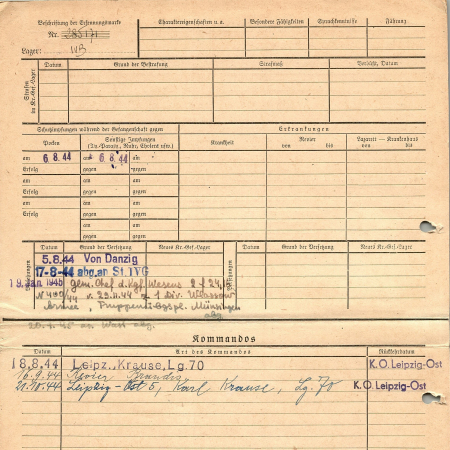 Beschriftung der Erkennungsmarke
Nr.
Lager: WB
Charaktereigenschaften u.a.
Besondere Fähigkeiten
Sprachkenntnisse
Führung
Strafen im Kr.-Gef.-Lager
Datum
Grund der Bestrafung
Strafmaß
Verbüßt, Datum
Schutzimpfungen während der Gefangenschaft gegen
Erkrankungen
Pocken
Sonstige Impfungen
(Ty.-Paraty., Ruhr, Cholera usw.)
Krankheit
Revier
von bis
Lazarett — Krankenhaus
von bis
am 6.8.44
am 6.8.44
Erfolg
gegen
gegen
am
am
am
Erfolg
gegen
gegen
am
am
gegen
gegen
am
am
gegen
gegen
Datum
Grund der Versetzung
Neues Kr.-Gef.-Lager
Datum
Grund der Versetzung
Neues Kr.-Gef.-Lager
5.8.44 Von Danzig
17-8-44 abg.an St.IVG
19. Jan 1945 gem. Chef d. Kgf. Wesens
v. 29.11.44 z. 1 Div. Wlassow
Armee, Truppenübgspl. Münsingen
abg.
Kommandos
Datum
Art des Kommandos
Rückkehrdatum
18.8.44 Leipz., Krause, Lg.70
K.O. Leipzig-Ost
16.9.44 Revier Brandis
21.10.44 Leipzig-Ost 5, Karl Krause, Lg. 70
K.O. Leipzig-Ost